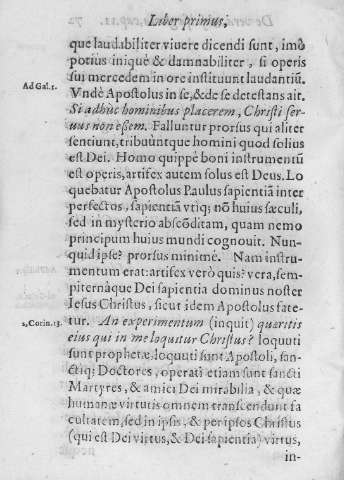 Liber primus,
que laudabiliter viuere dicendi sunt, imò
potius iniquè & damnabiliter, si operis
sui mercedem in ore instituunt laudantiũ.
Ad Gal. 1.
Vndè Apostolus in se, & de se detestans ait.
Si adhùc hominibus placerem, Christi ser-
uus non eßem. Falluntur prorsus qui aliter
sentiunt, tribuùntque homini quod solius
est Dei. Homo quippè boni instrumentũ
est operis, artifex autem solus est Deus. Lo
quebatur Apostolus Paulus sapientiã inter
perfectos, sapientiã vtiq; nõ huius sæculi,
sed in mysterio abscõditam, quam nemo
principum huius mundi cognouit. Nun-
quid ipse? prorsus minimè. Nam instru-
mentum erat: artifex verò quis? vera, sem-
piternàque Dei sapientia dominus noster
Iesus Christus, sicut idem Apostolus fate-
2, Corin. 13.
tur. An experimentum (inquit) quæritis
eius qui in me loquitur Christus? loquuti
sunt prophetæ, loquuti sunt Apostoli, san-
ctiq; Doctores, operati etiam sunt sancti
Martyres, & amici Dei mirabilia, & quæ
humanæ virtutis omnem transcendunt fa
cultatem, sed in ipsis, & per ipsos Christus
(qui est Dei virtus, & Dei sapientia) virtus,
in-